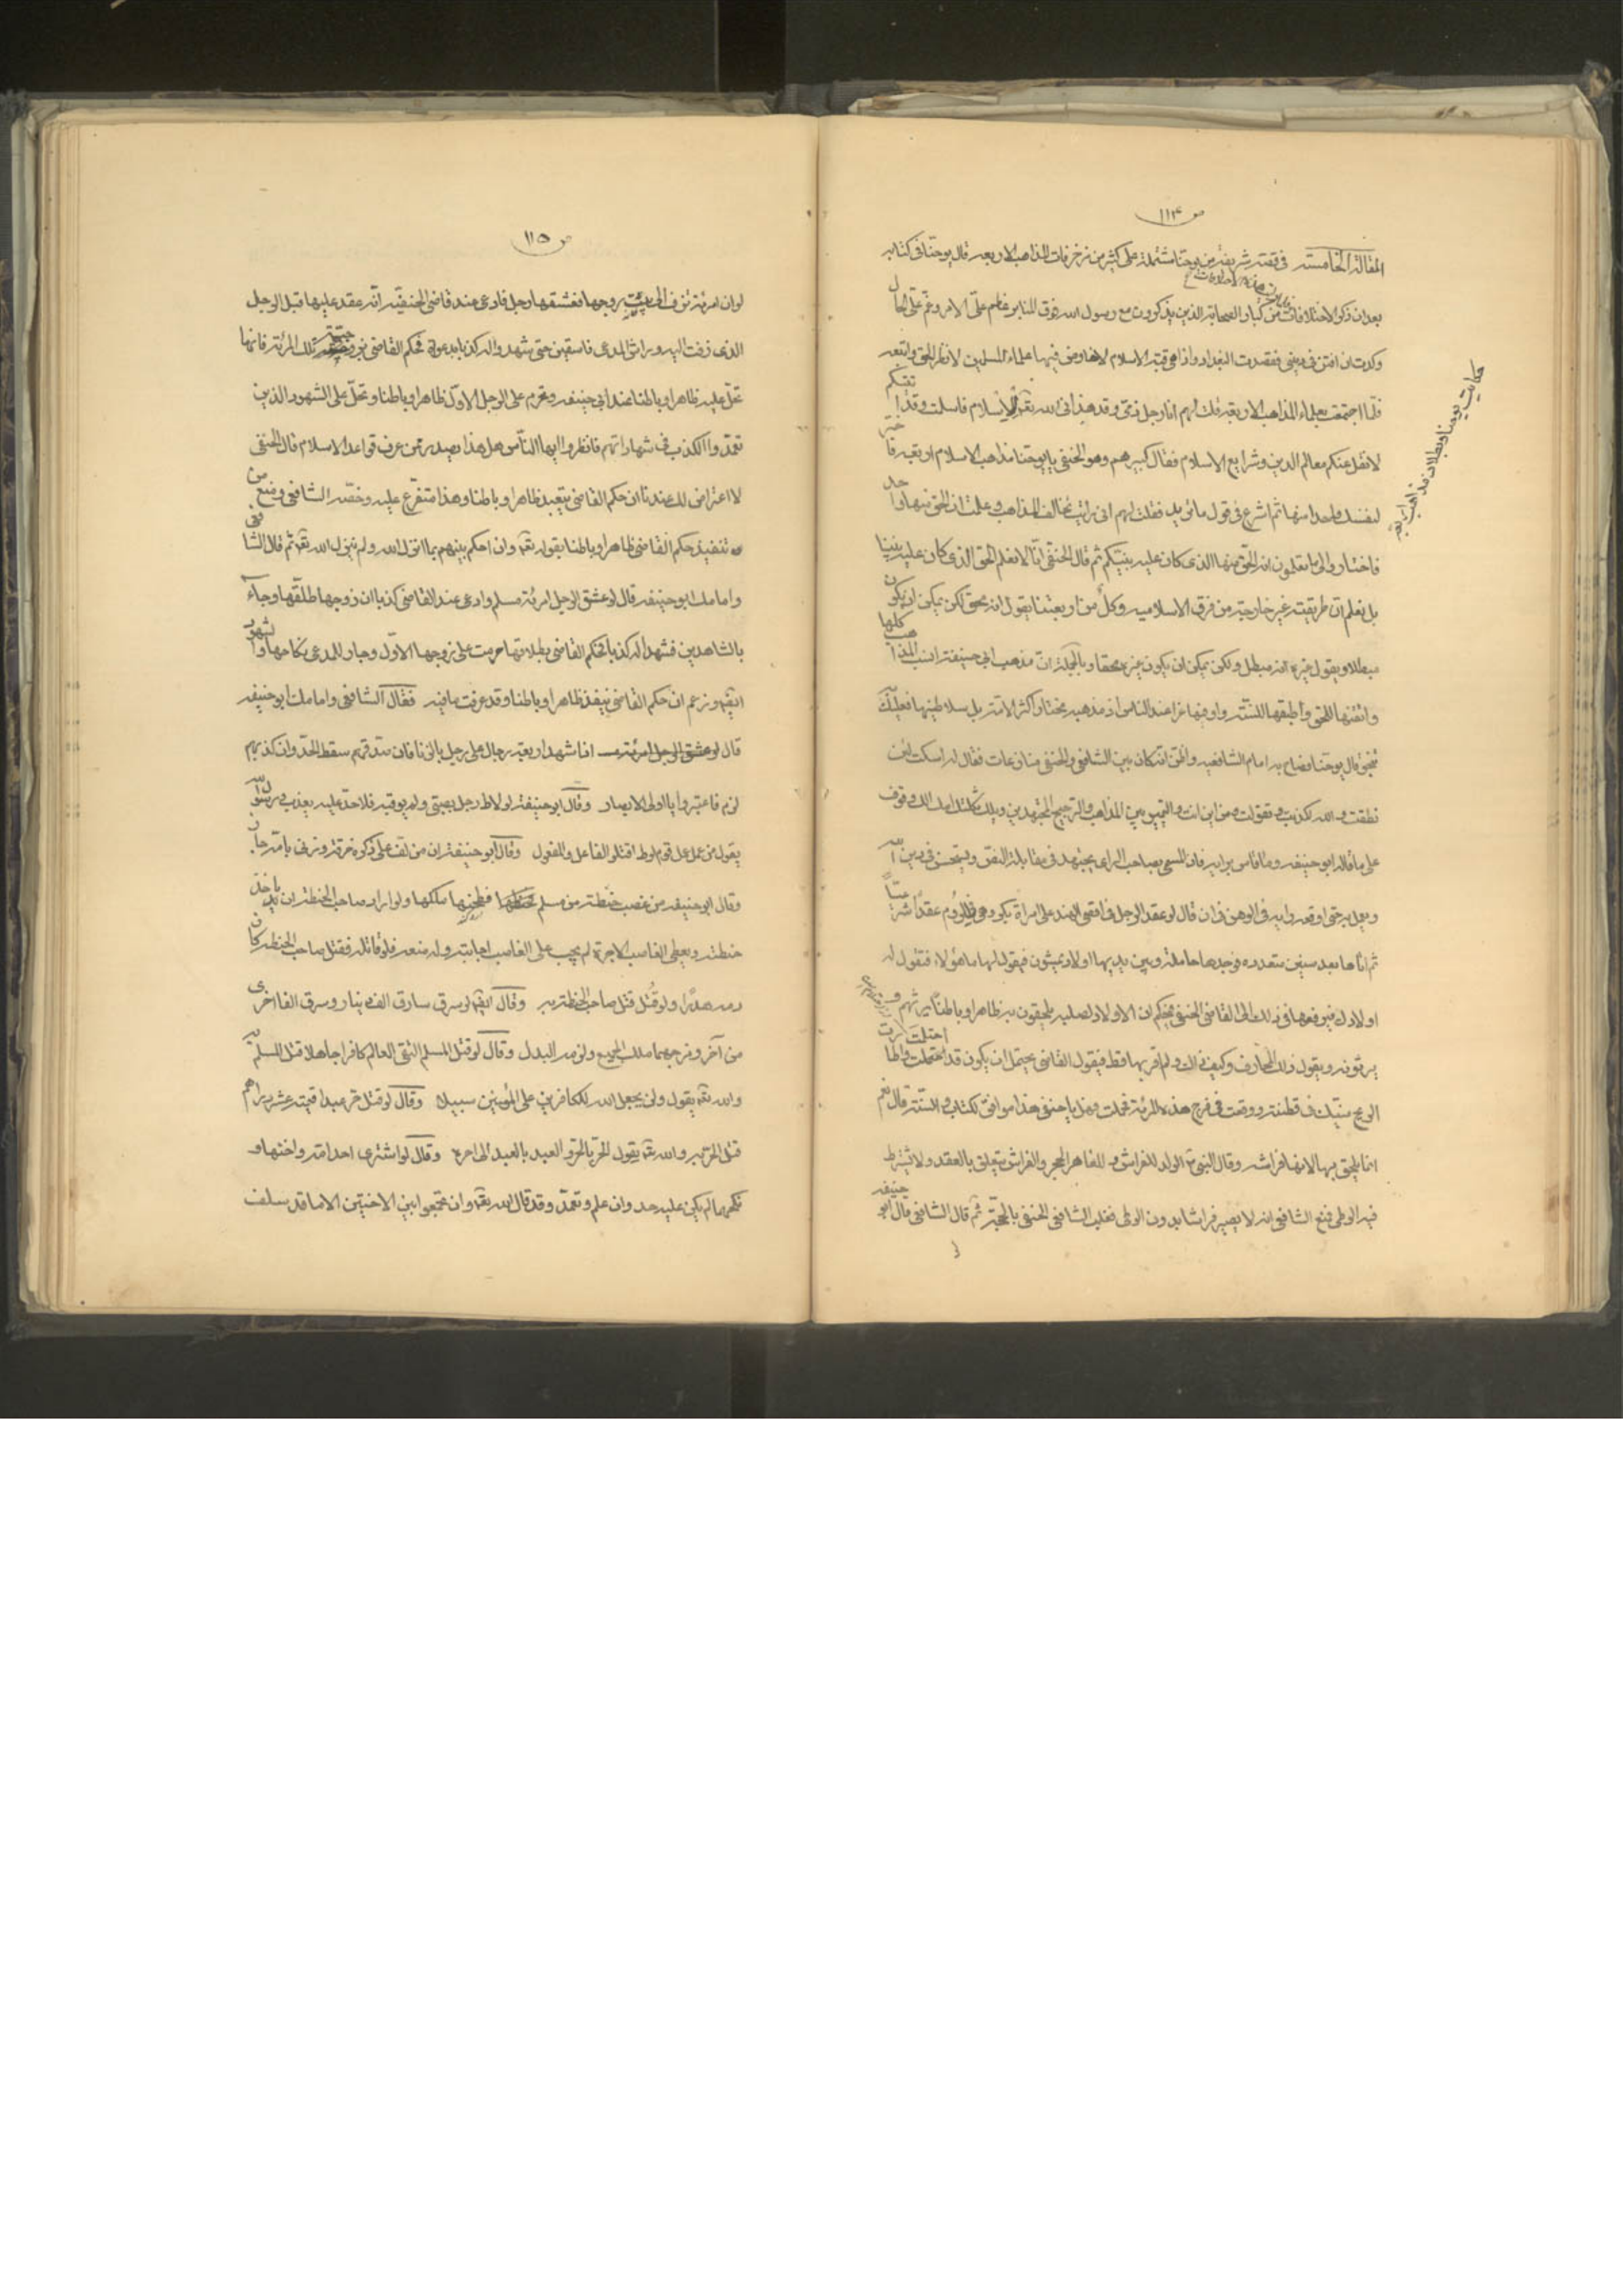 ص ١١٤
المقالة الخامسة في قصة شريفة من يوحنا مشتملة على كثير من مزخرفات المذاهب الاربعة قال يوحنا في كتابه
بعد ان ذكر الاختلافات من كبار الصحابة الذين يذكرون مع رسول الله فوق المنابر عظم على الامر وغم على الحال
وكدت ان افتتن في ديني فقصدت البغداد واذا هي قبة الاسلام لافاوض فيها علماء المسلمين لانظر الحق واتبعه
فلما اجتمعت بعلماء المذاهب الاربعة قلت لهم انا رجل ذمي وقد هداني الله تعالى للاسلام فاسلمت وقد اتيتكم
لانقل عنكم معالم الدين وشرايع الاسلام فقال كبيرهم وهو الحنفي يا يوحنا مذاهب الاسلام اربعة فاختر
لنفسك واحدا منها ثم اشرع في قول ما تريد فقلت لهم اني رايت تخالف المذاهب وعلمت ان الحق منها واحد
فاختاروا لي ما تعلمون انه الحق منها الذي كان عليه نبيكم ثم قال الحنفي انا لا نعلم الحق الذي كان عليه نبينا
بل نعلم ان طريقته غير خارجة من فرق الاسلامية وكل من اربعتنا يقول انه محق لكن يمكن ان يكون
مبطلا ويقول غيره انه مبطل ولكن يمكن ان يكون غيره محقا وبالجملة ان مذهب ابي حنيفة انسب المذاهب كلها
واتقنها للحق واطبقها للسنة واوفيها عزا عند الناس اذ مذهبه مختار اكثر الامة بل سلاطينها فعليك
تنجو قال يوحنا فصاح به امام الشافعية واظن انه كان بين الشافعي والحنفي منازعات فقال له اسكت لئن
نطقت والله لكذبت وتقولت ومن اين انت والتمييز بين المذاهب والترجيح المجتهدين ويلك ثكلتك امك الك وقوف
على ما قاله ابو حنيفة وما قاس برايه فان المسمى بصاحب الراي يجتهد في مقابلة النص ويستحسن في دين الله
ويعمل به حتى اوقعه رايه في الوهن في ان قال لو عقد الرجل في اقصى الهند على امراة بكر وهي في الروم عقدا شرعيا
ثم اتاها بعد سنين متعددة فوجدها حاملة وبين يديها اولاد يمشون فيقول لها ما هؤلاء فتقول له
اولادك فيرفعها في ذلك الى القاضي الحنفي فيحكم ان الاولاد لصلبه يلحقون به ظاهرا وباطنا يرثهم و
يرثونه ويقول ذلك الرجل وكيف ذلك ولم اقربها قط فيقول القاضي يحتمل ان يكون قد احتلمت واطارت
الريح منيك في قطنة ووقعت في فرج هذه المرئة فحملت وهل يا حنفي هذا موافق لكتاب والسنة قال نعم
انما يلحق بها لانها فراشه وقال النبي ص الولد للفراش و للعاهر الحجر والفراش يتعلق بالعقد ولا يشترط
فيه الوطي فمنع الشافعي انه لا يصير فراشا بدون الوطي فغلب الشافعي الحنفي بالحجة ثم قال الشافعي قال ابو حنيفة
حكايت يوحنا وبطلان مذاهب اربعه
ص ١١٥
لو ان امرئة تزف الى زوجها فعشقها رجل فادعى عند قاضي الحنفية انه عقد عليها قبل الرجل
الذي زفت اليه وراشى المدعي فاسقين حتى شهدوا له كذبا بدعواه فحكم القاضي بزوجيته تلك المرئة فانها
تحل عليه ظاهرا وباطنا عند ابي حنيفة وتحرم على الرجل الاول ظاهرا وباطنا وتحل على الشهود الذين
تعمدوا الكذب في شهاداتهم فانظروا ايها الناس هل هذا يصدر ممن عرف قواعد الاسلام قال الحنفي
لا اعتراض لك عندنا ان حكم القاضي ينفذ ظاهرا وباطنا وهذا متفرع عليه وخصه الشافعي ومنع من
تنفيذ حكم القاضي ظاهرا وباطنا بقوله تعالى وان احكم بينهم بما انزل الله ولم ينزل الله تعالى ثم قال الشافعي
وامامك ابو حنيفة قال لو عشق الرجل امرئة مسلم وادعى عند القاضي كذبا ان زوجها طلقها وجاء
بالشاهدين فشهدا له كذبا فحكم القاضي بطلاقها حرمت على زوجها الاول وجاز للمدعي نكاحها وللشهود
ايضا وزعم ان حكم القاضي ينفذ ظاهرا وباطنا وقد عرفت ما فيه فقال الشافعي وامامك ابو حنيفة
قال لو عشق الرجل امرئة اذا شهد اربعة رجال على رجل بالزنا فان صدقهم سقط الحد وان كذبهم
لزم فاعتبروا يا اولى الابصار وقال ابو حنيفة لو لاط رجل بصبي ولم يوقبه فلا حد عليه يعذب ورسول الله
يقول من عمل عمل قوم لوط اقتلوا الفاعل والمفعول وقال ابو حنيفة ان من لف على ذكره خرقة وزنى بامه جاز
وقال ابو حنيفة من غصب حنطة من مسلم فطحنها ملكها ولو اراد صاحب الحنطة ان ياخذ
حنطته ويعطى الغاصب الاجرة لم يجب على الغاصب اجابته وله منعه فلو قاتله فقتل صاحب الحنطة كان
دمه هدرا ولو قتل قتل صاحب الحنطة به وقال ايضا لو سرق سارق الف دينار وسرق الفا اخرى
من آخر ومزجهما ملك الجميع ولزمه البدل وقال لو قتل المسلم التقي العالم كافرا جاهلا قتل المسلم به
والله تعالى يقول ولن يجعل الله للكافرين على المؤمنين سبيلا وقال لو قتل حر عبدا قيمته عشرة دراهم
قتل الحر به والله تعالى يقول الحر بالحر والعبد بالعبد الى اخره وقال لو اشترى احد امته واختها و
نكحهما لم يكن عليه حد وان علم وتعمد وقد قال الله تعالى وان تجمعوا بين الاختين الا ما قد سلف